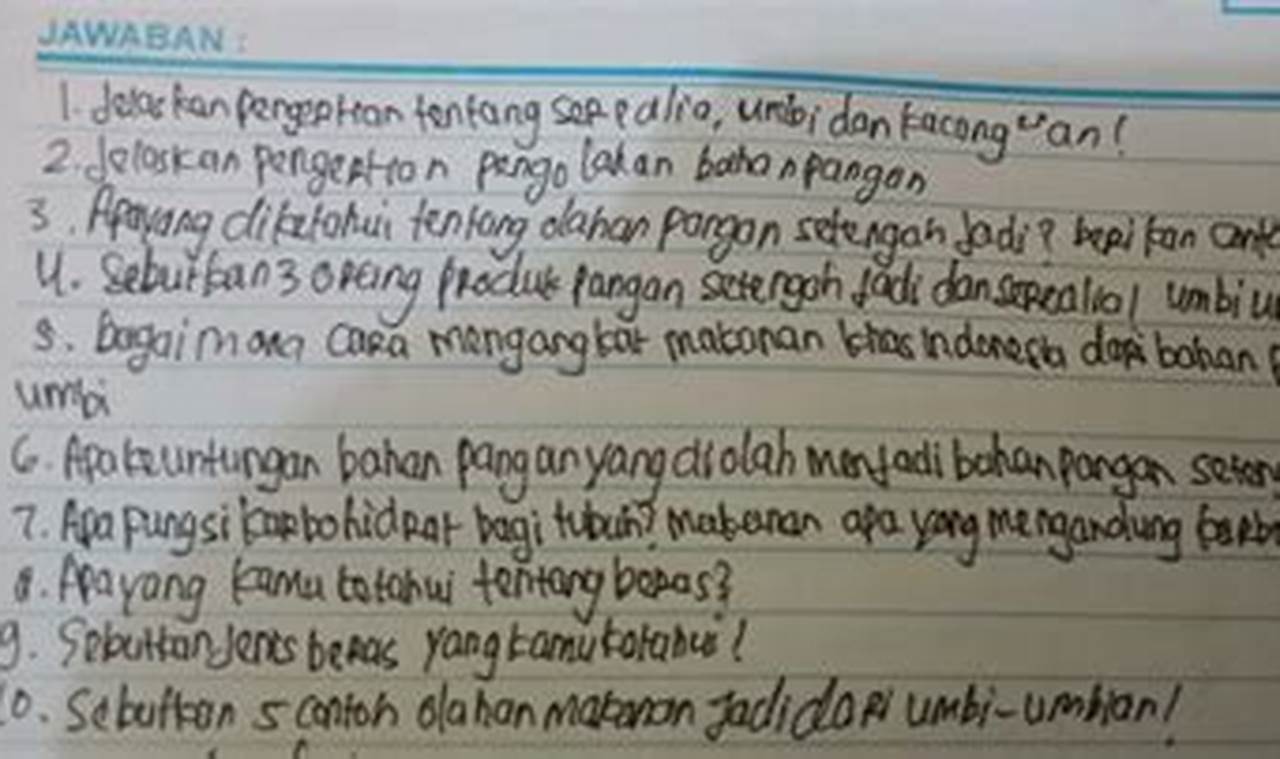 JAWABAN :
1. Jelaskan pengertian tentang serealia, umbi dan kacang"an!
2. Jelaskan pengertian pengolahan bahan pangan
3. Apa yang diketahui tentang olahan pangan setengah jadi? berikan
4. Sebutkan 3 orang produk pangan setengah jadi dan serealia, umbi
5. Bagaimana cara mengangkat makanan khas Indonesia dari bahan
umbi
6. Apa keuntungan bahan pangan yang diolah menjadi bahan pangan
7. Apa pungsi karbohidrat bagi tubuh? makanan apa yang mengandung
8. Apa yang kamu ketahui tentang beras?
9. Sebutkan jenis beras yang kamu ketahui!
10. Sebutkan 5 contoh olahan makanan jadi dari umbi-umbian!